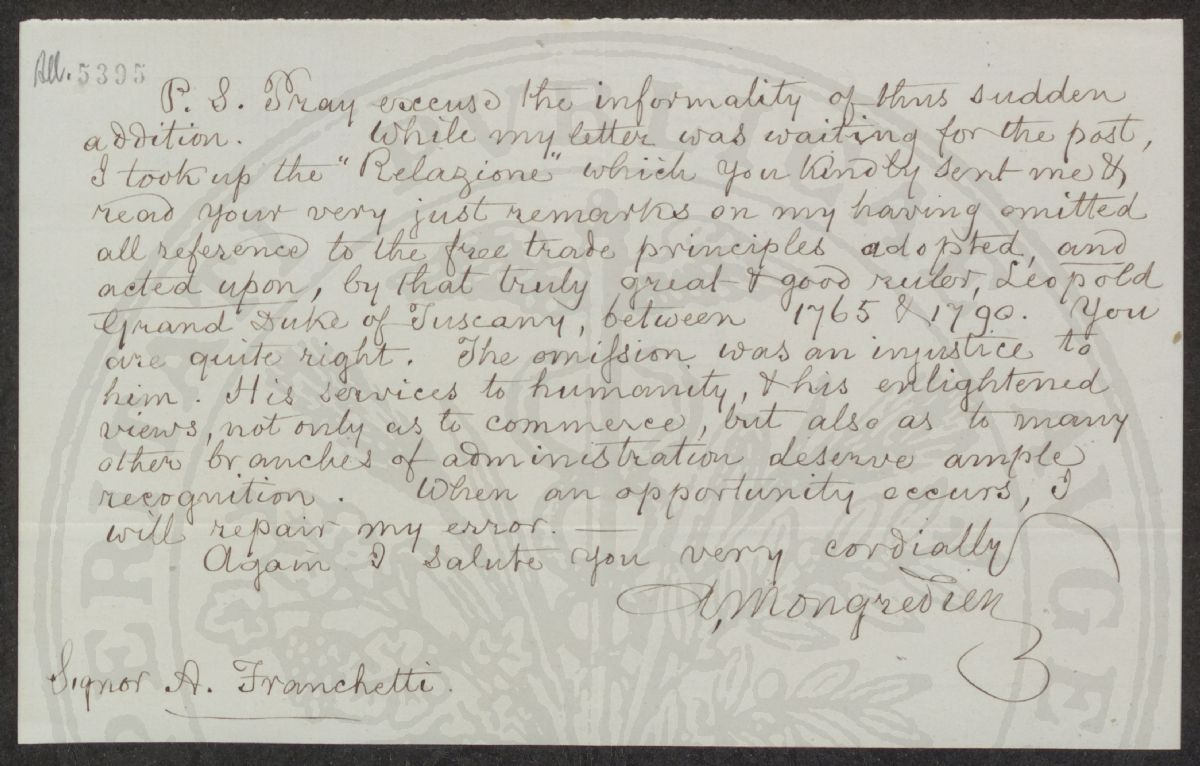 All. 5395
P. S. Pray excuse the informality of this sudden
addition. While my letter was waiting for the post,
I took up the "Relazione" which you kindly sent me &
read your very just remarks on my having omitted
all reference to the free trade principles adopted, and
acted upon, by that truly great & good ruler, Leopold
Grand Duke of Tuscany, between 1765 & 1790. You
are quite right. The omission was an injustice to
him. His services to humanity, & his enlightened
views, not only as to commerce, but also as to many
other branches of administration deserve ample
recognition. When an opportunity occurs, I
will repair my error. —
Again I salute you very cordially
A, Mongredien
Signor A. Franchetti.